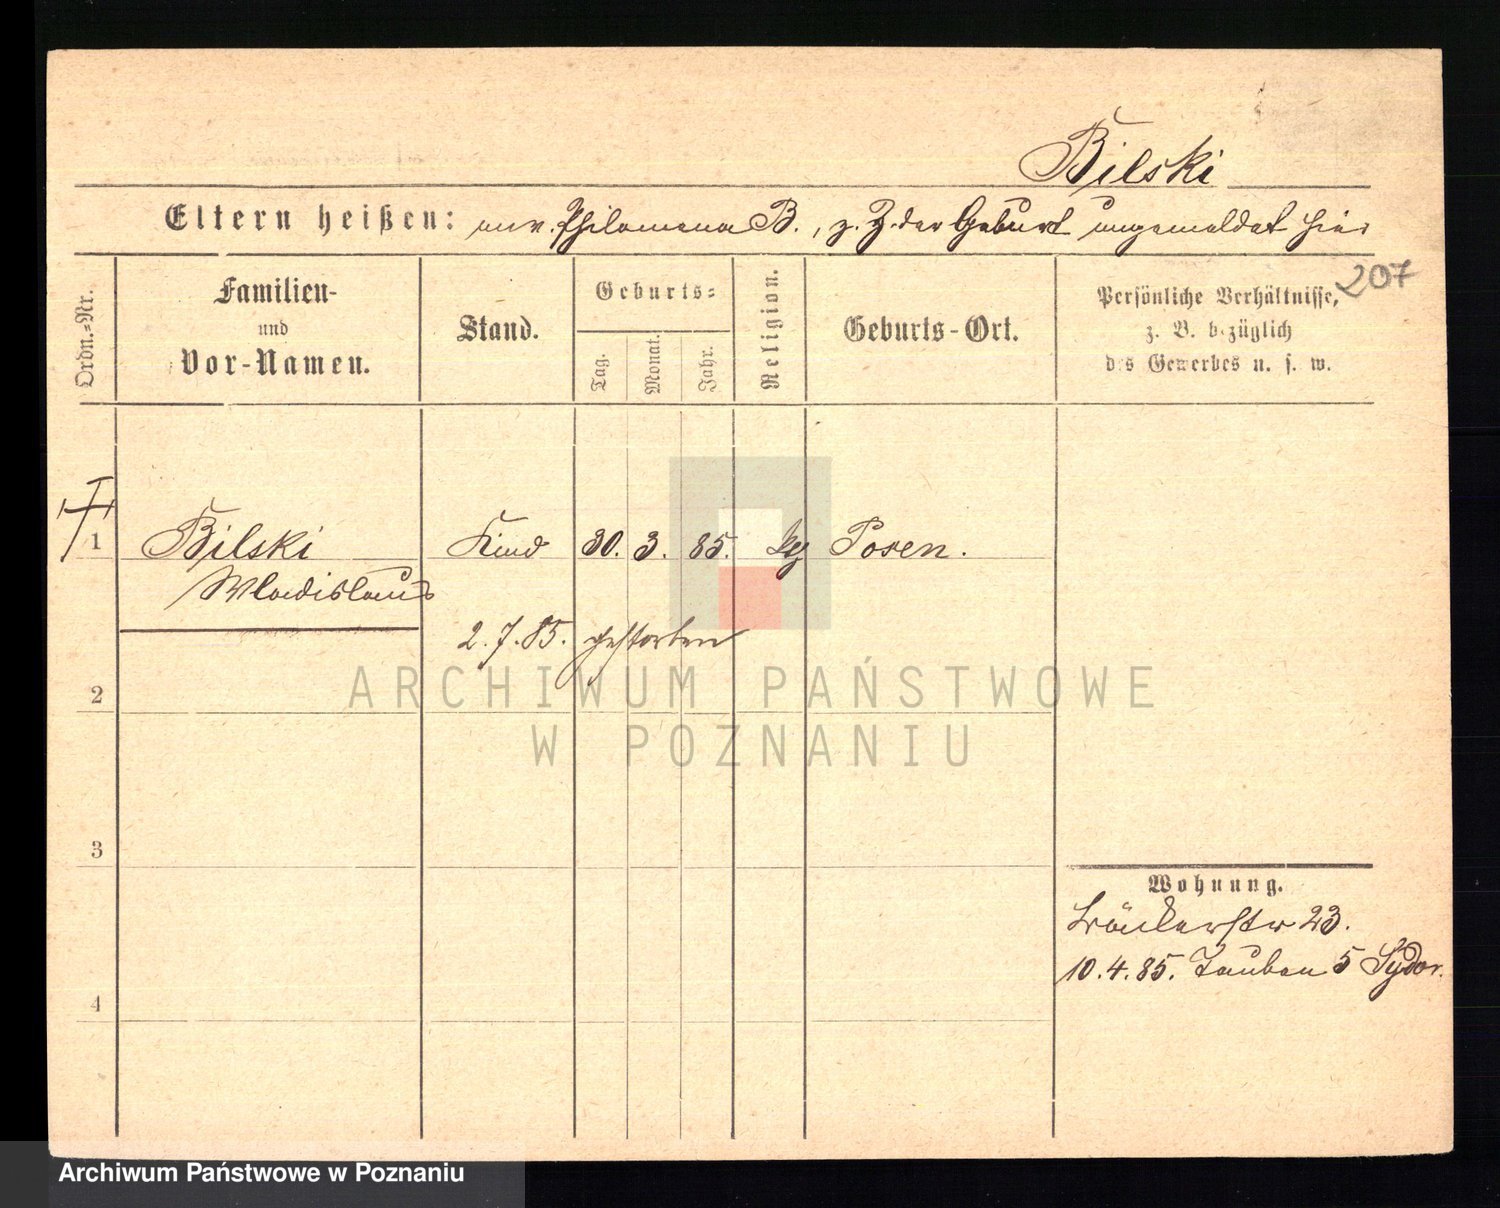 Bilski
Eltern heißen: unv. Philomena B., z. Z. der Geburt ungemeldet hier
207
Ordn.-Nr.
Familien-
und
Vor-Namen.
Stand.
Geburts-
Tag.
Monat.
Jahr.
Religion.
Geburts-Ort.
Persönliche Verhältnisse,
z. B. bezüglich
des Gewerbes u. s. w.
1 Bilski Kind 30. 3. 85. Posen.
Wladislaus
2. 7. 85. gestorben
2
ARCHIWUM PAŃSTWOWE
W POZNANIU
3
Wohnung.
23.
4
10. 4. 85. Tauben 5 Sydor.
Archiwum Państwowe w Poznaniu